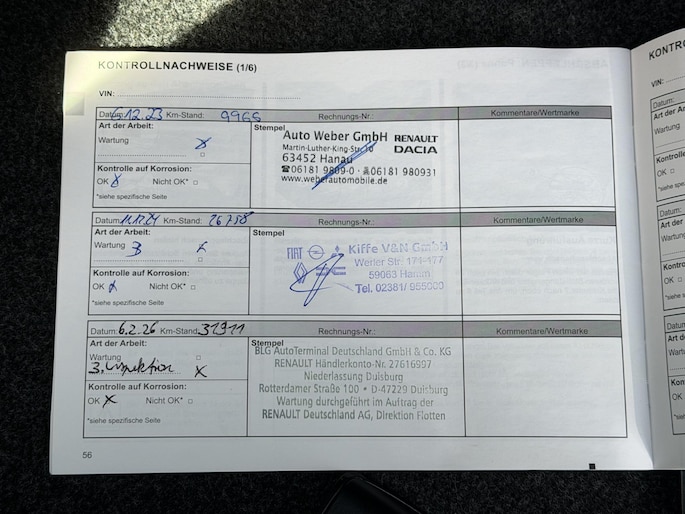 KONTROLLNACHWEISE (1/6)
VIN:
Datum: 6.12.23 Km-Stand: 9965 Rechnungs-Nr.: Kommentare/Wertmarke
Art der Arbeit: Stempel
Wartung x
Auto Weber GmbH RENAULT
Martin-Luther-King-Str. 10 DACIA
63452 Hanau
☎06181 9809-0 · 06181 980931
www.weberautomobile.de
Kontrolle auf Korrosion:
OK x Nicht OK* □
*siehe spezifische Seite
Datum: Km-Stand: 26758 Rechnungs-Nr.: Kommentare/Wertmarke
Art der Arbeit: Stempel
Wartung 3 x
FIAT Kiffe V&N GmbH
Werler Str. 171-177
59063 Hamm
Tel. 02381/ 955000
Kontrolle auf Korrosion:
OK x Nicht OK* □
*siehe spezifische Seite
Datum: 6.2.26 Km-Stand: 31911 Rechnungs-Nr.: Kommentare/Wertmarke
Art der Arbeit: Stempel
Wartung □
3. Inspektion x
BLG AutoTerminal Deutschland GmbH & Co. KG
RENAULT Händlerkonto-Nr. 27616997
Niederlassung Duisburg
Rotterdamer Straße 100 • D-47229 Duisburg
Wartung durchgeführt im Auftrag der
RENAULT Deutschland AG, Direktion Flotten
Kontrolle auf Korrosion:
OK x Nicht OK* □
*siehe spezifische Seite
56
KONTRO
VIN:
Datum:
Art der A
Wartung
Kontrolle
OK □
*siehe s
Datum:
Art der
Wartung
Kontro
OK □
*siehe
Datu
Art d
War
Kon
OK
*sie